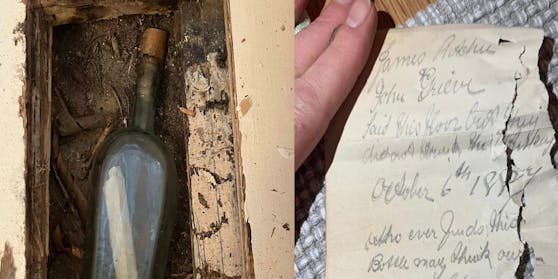 James Ritchie
John Grieve
laid this floor but they
did not drink the whisky
October 6th 1887
who ever finds this
Bottle may think our